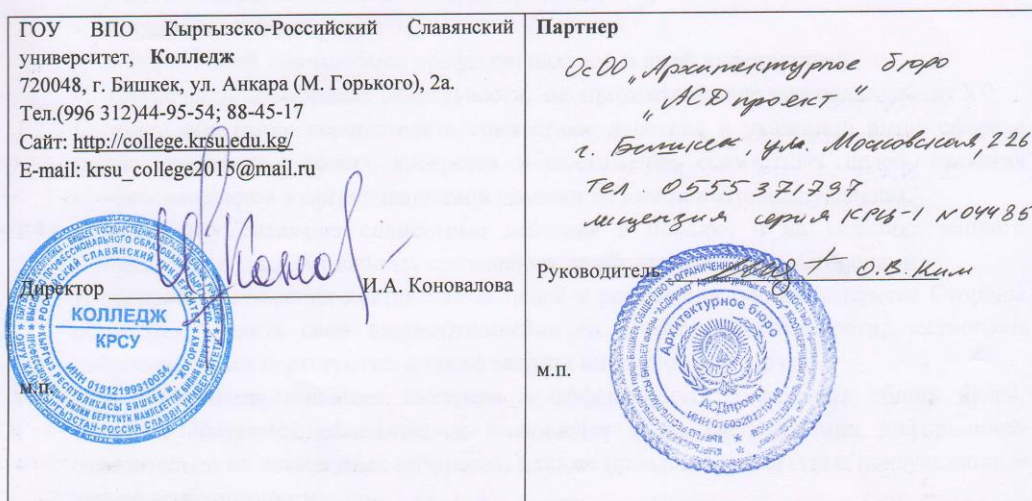 ГОУ ВПО Кыргызско-Российский Славянский
университет, Колледж
720048, г. Бишкек, ул. Анкара (М. Горького), 2а.
Тел.(996 312)44-95-54; 88-45-17
Сайт: http://college.krsu.edu.kg/
E-mail: krsu_college2015@mail.ru
Директор И.А. Коновалова
м.п.
КОЛЛЕДЖ
КРСУ
ИНН 01512199310054
Партнер
ОсОО „Архитектурное бюро
"АСДпроект"
г. Бишкек, ул. Московская, 226
тел. 0555 371797
лицензия серия КРЦБ-1 N 04485
Руководитель О.В. Ким
м.п.
Архитектурное бюро
АСДпроект